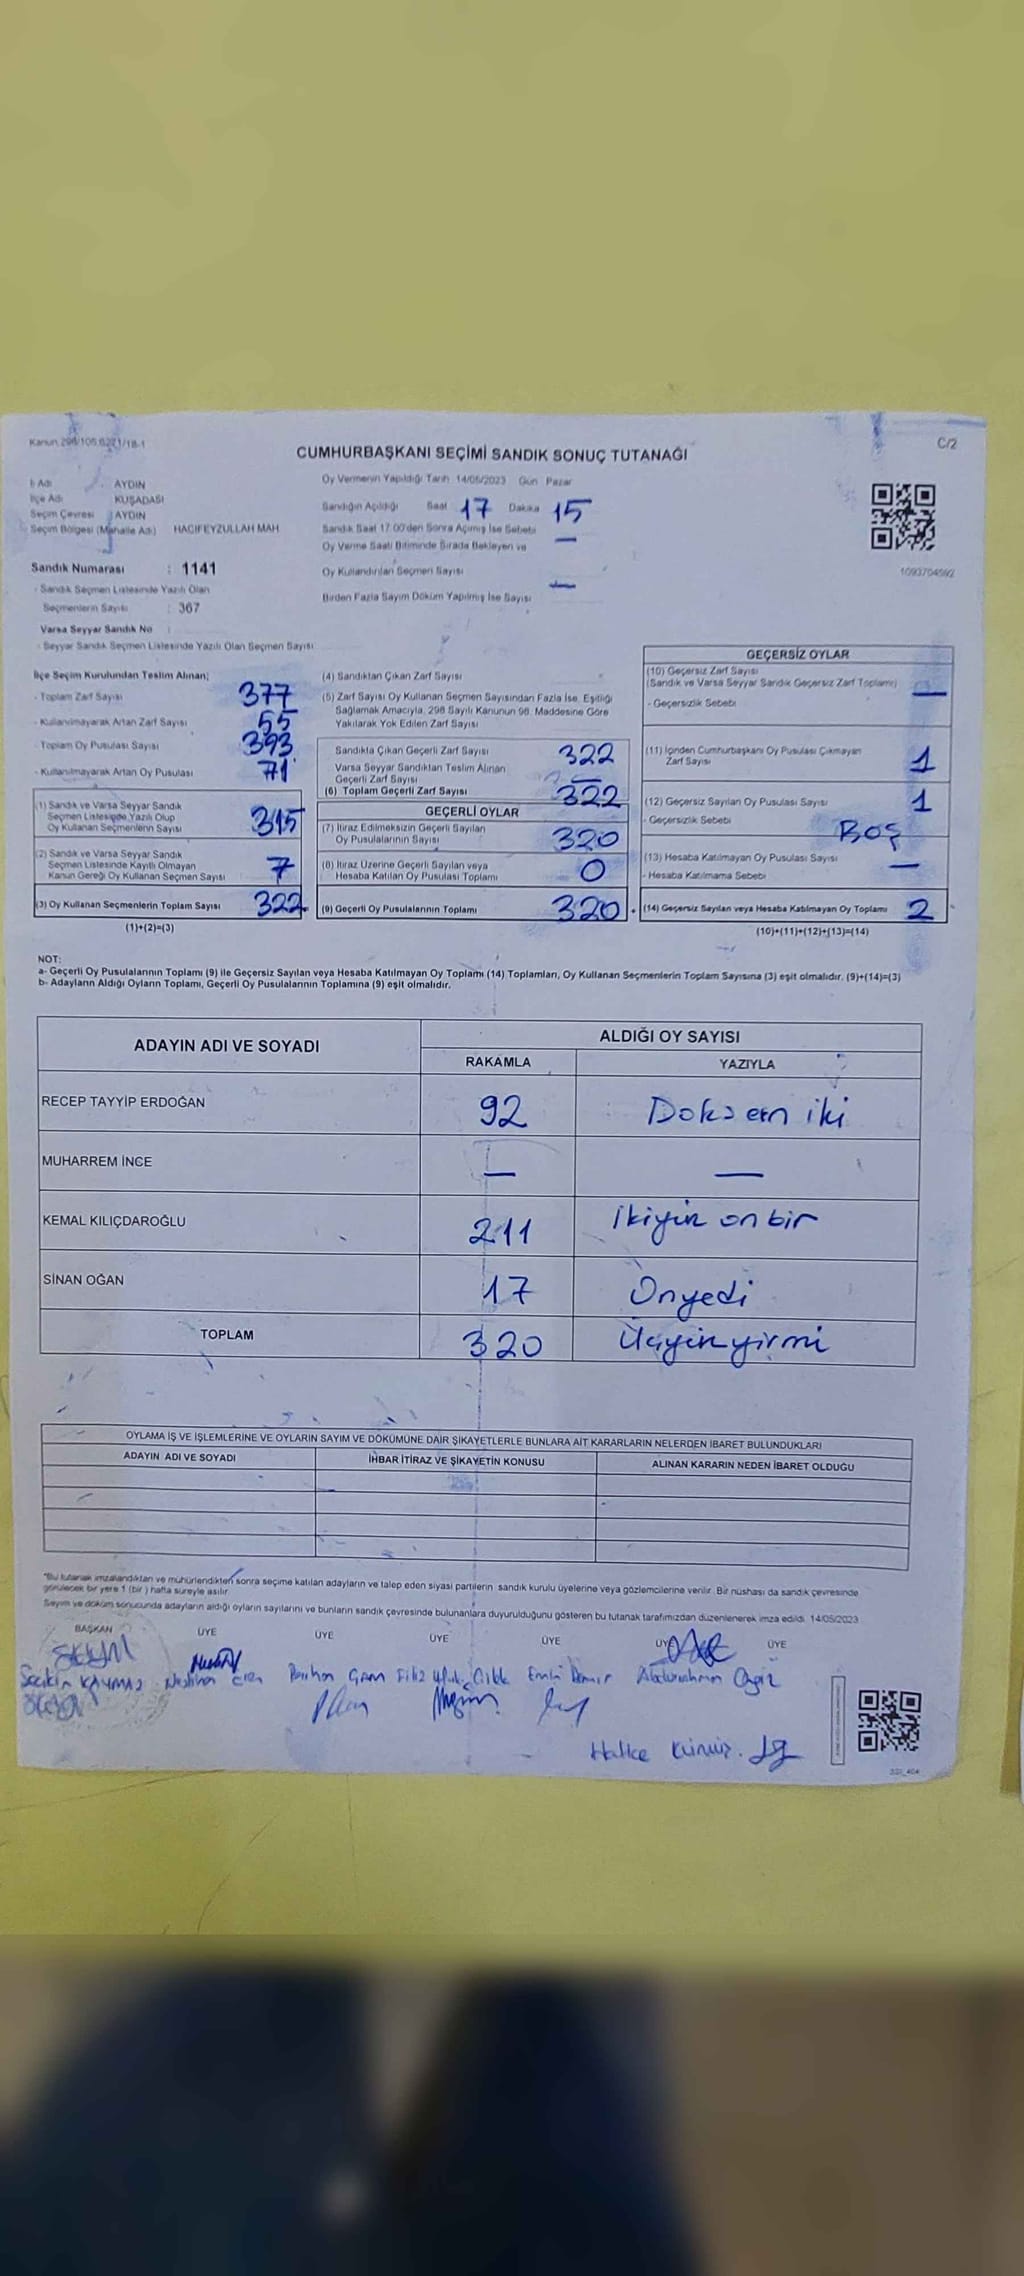 Kanun 298/105,6271/18-1
C/2
CUMHURBAŞKANI SEÇİMİ SANDIK SONUÇ TUTANAĞI
İl Adı : AYDIN
İlçe Adı : KUŞADASI
Seçim Çevresi : AYDIN
Seçim Bölgesi (Mahalle Adı) HACIFEYZULLAH MAH
Sandık Numarası : 1141
- Sandık Seçmen Listesinde Yazılı Olan
Seçmenlerin Sayısı : 367
Varsa Seyyar Sandık No :
- Seyyar Sandık Seçmen Listesinde Yazılı Olan Seçmen Sayısı
Oy Vermenin Yapıldığı Tarih 14/05/2023 Gün Pazar
Sandığın Açıldığı Saat 17 Dakika 15
Sandık Saat 17.00'den Sonra Açılmış İse Sebebi —
Oy Verme Saati Bitiminde Sırada Bekleyen ve
Oy Kullandırılan Seçmen Sayısı —
Birden Fazla Sayım Döküm Yapılmış İse Sayısı
1093704592
İlçe Seçim Kurulundan Teslim Alınan;
- Toplam Zarf Sayısı 377
- Kullanılmayarak Artan Zarf Sayısı 55
- Toplam Oy Pusulası Sayısı 393
- Kullanılmayarak Artan Oy Pusulası 71
(1) Sandık ve Varsa Seyyar Sandık
Seçmen Listesinde Yazılı Olup
Oy Kullanan Seçmenlerin Sayısı 315
(2) Sandık ve Varsa Seyyar Sandık
Seçmen Listesinde Kayıtlı Olmayan
Kanun Gereği Oy Kullanan Seçmen Sayısı 7
(3) Oy Kullanan Seçmenlerin Toplam Sayısı 322
(1)+(2)=(3)
(4) Sandıktan Çıkan Zarf Sayısı
(5) Zarf Sayısı Oy Kullanan Seçmen Sayısından Fazla İse, Eşitliği
Sağlamak Amacıyla, 298 Sayılı Kanunun 98. Maddesine Göre
Yakılarak Yok Edilen Zarf Sayısı
Sandıkta Çıkan Geçerli Zarf Sayısı 322
Varsa Seyyar Sandıktan Teslim Alınan
Geçerli Zarf Sayısı —
(6) Toplam Geçerli Zarf Sayısı 322
GEÇERLİ OYLAR
(7) İtiraz Edilmeksizin Geçerli Sayılan
Oy Pusulalarının Sayısı 320
(8) İtiraz Üzerine Geçerli Sayılan veya
Hesaba Katılan Oy Pusulası Toplamı 0
(9) Geçerli Oy Pusulalarının Toplamı 320
GEÇERSİZ OYLAR
(10) Geçersiz Zarf Sayısı
(Sandık ve Varsa Seyyar Sandık Geçersiz Zarf Toplamı) —
- Geçersizlik Sebebi
(11) İçinden Cumhurbaşkanı Oy Pusulası Çıkmayan
Zarf Sayısı 1
(12) Geçersiz Sayılan Oy Pusulası Sayısı 1
- Geçersizlik Sebebi BOŞ
(13) Hesaba Katılmayan Oy Pusulası Sayısı —
- Hesaba Katılmama Sebebi
(14) Geçersiz Sayılan veya Hesaba Katılmayan Oy Toplamı 2
(10)+(11)+(12)+(13)=(14)
NOT:
a- Geçerli Oy Pusulalarının Toplamı (9) ile Geçersiz Sayılan veya Hesaba Katılmayan Oy Toplamı (14) Toplamları, Oy Kullanan Seçmenlerin Toplam Sayısına (3) eşit olmalıdır. (9)+(14)=(3)
b- Adayların Aldığı Oyların Toplamı, Geçerli Oy Pusulalarının Toplamına (9) eşit olmalıdır.
ADAYIN ADI VE SOYADI
ALDIĞI OY SAYISI
RAKAMLA YAZIYLA
RECEP TAYYİP ERDOĞAN 92 Doksan iki
MUHARREM İNCE — —
KEMAL KILIÇDAROĞLU 211 İkiyüz on bir
SİNAN OĞAN 17 Onyedi
TOPLAM 320 Üçyüzyirmi
OYLAMA İŞ VE İŞLEMLERİNE VE OYLARIN SAYIM VE DÖKÜMÜNE DAİR ŞİKAYETLERLE BUNLARA AİT KARARLARIN NELERDEN İBARET BULUNDUKLARI
ADAYIN ADI VE SOYADI İHBAR İTİRAZ VE ŞİKAYETİN KONUSU ALINAN KARARIN NEDEN İBARET OLDUĞU
*Bu tutanak imzalandıktan ve mühürlendikten sonra seçime katılan adayların ve talep eden siyasi partilerin sandık kurulu üyelerine veya gözlemcilerine verilir. Bir nüshası da sandık çevresinde
görülecek bir yere 1 (bir) hafta süreyle asılır.
Sayım ve döküm sonucunda adayların aldığı oyların sayılarını ve bunların sandık çevresinde bulunanlara duyurulduğunu gösteren bu tutanak tarafımızdan düzenlenerek imza edildi. 14/05/2023
BAŞKAN ÜYE ÜYE ÜYE ÜYE ÜYE ÜYE
Seçkin KAYMAZ Neslihan Filiz Ufuk Emin Demir Abdurrahman
Hatice